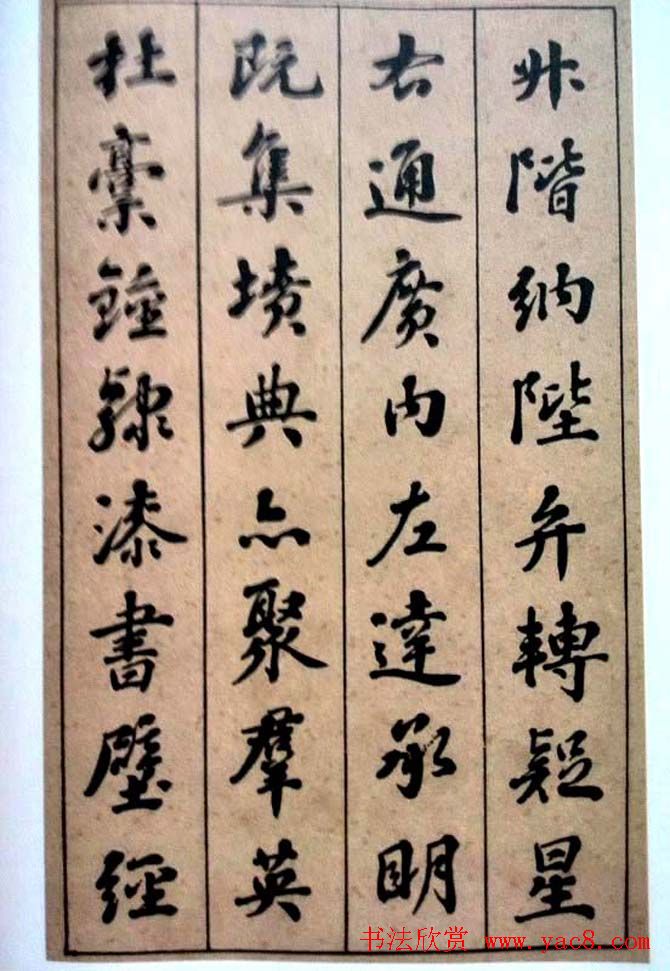 升階納陛弁轉疑星
右通廣内左達承明
既集墳典亦聚羣英
杜稾鍾隸漆書壁經
书法欣赏 www.yac8.com